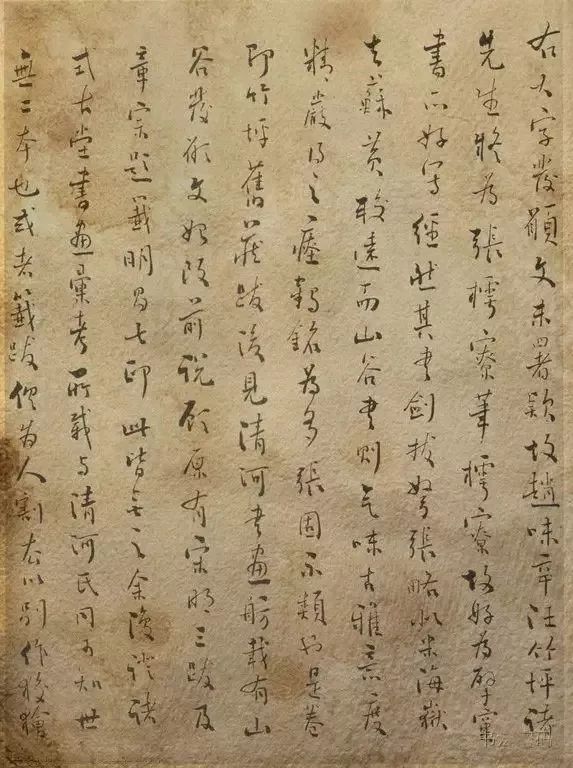 右大字發願文未署款故趙味辛汪竹坪諸
先生疑為張樗寮筆樗寮故好為擘窠
書亦好寫經然其書劍拔弩張略似米海嶽
去蘇黃較遠而山谷書則氣味古雅言度
精嚴得之瘞鶴銘為多張固不類也是卷
即竹坪舊藏跋後見清河書畫舫載有山
谷發願文始改前說頋原有宋明三跋及
章宗題籤明昌七印此皆無之余復證諸
式古堂書畫彙考所載與清河氏同可知世
無二本也或者籤跋俱為人割去以別作狡獪